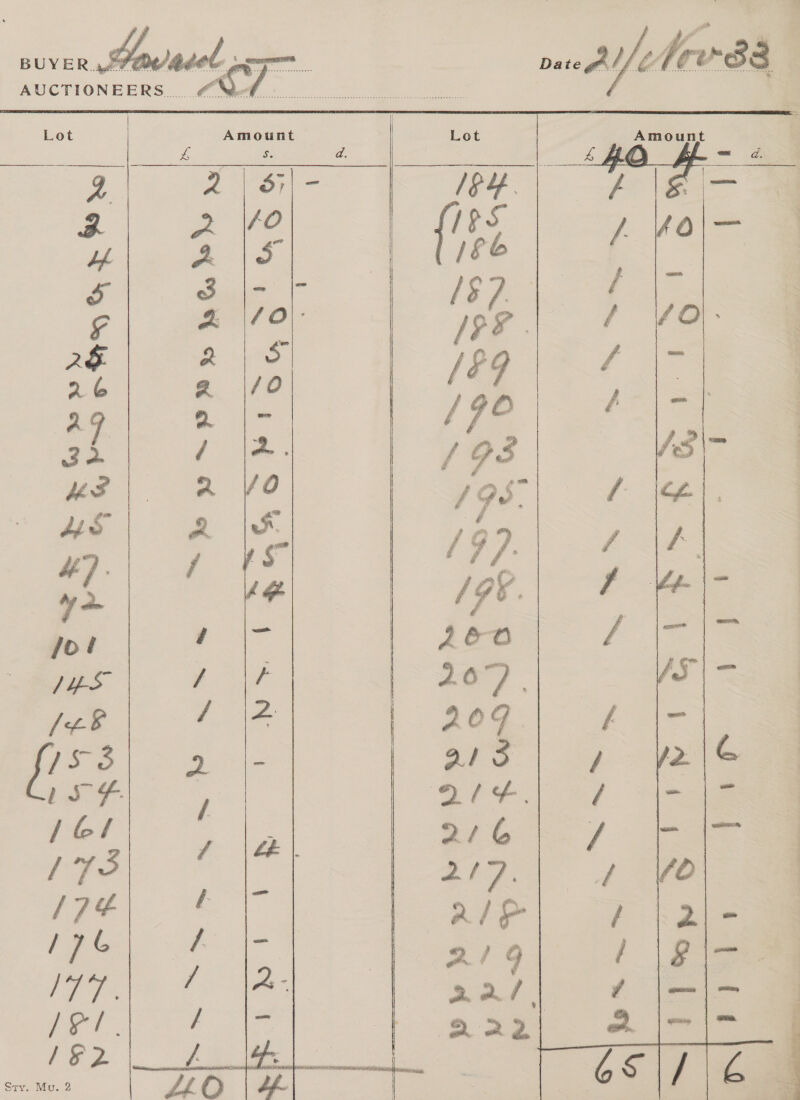 BUYER Howard ST
Date 21/Nov 33
AUCTIONEERS
Lot Amount Lot Amount
£ s. d. £ 40 4 - d.
2 2 5 - 184. 1 8 -
3 2 10 {185 1 10 -
4 2 5 186
5 3 - - 187. 1 -
8 2 10 188. 1 10
25 2 5 189 1 -
26 2 10 190 1 -
29 2 - 193 13 -
32 1 2. 195. 1 4
43 2 10 197. 1 1
45 2 5 198. 1 4 -
47. 1 15 200 1 - -
72 14 207. 15 -
101 1 - 209 1 -
145 1 1 213 1 12 6
148 1 2 214. 1 - -
{153 2 - 216 1 - -
154. 217. 1 10
161 1 218 1 2 -
173 1 4 219 1 8 -
174 1 - 221. 1 - -
176 1 - 222 2 - -
177. 1 2 - 65 1 6
181. 1 -
182 1 4.
40 4
Sty. Mu. 2